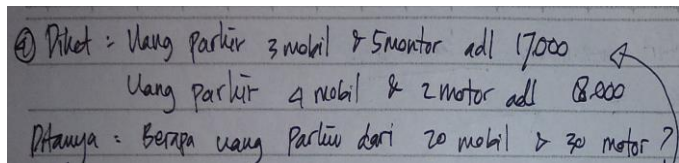 ④ Diket : Uang parkir 3 mobil & 5 montor adl 17.000
Uang parkir 4 mobil & 2 motor adl 18.000
Ditanya : Berapa uang Parkir dari 20 mobil & 30 motor ?